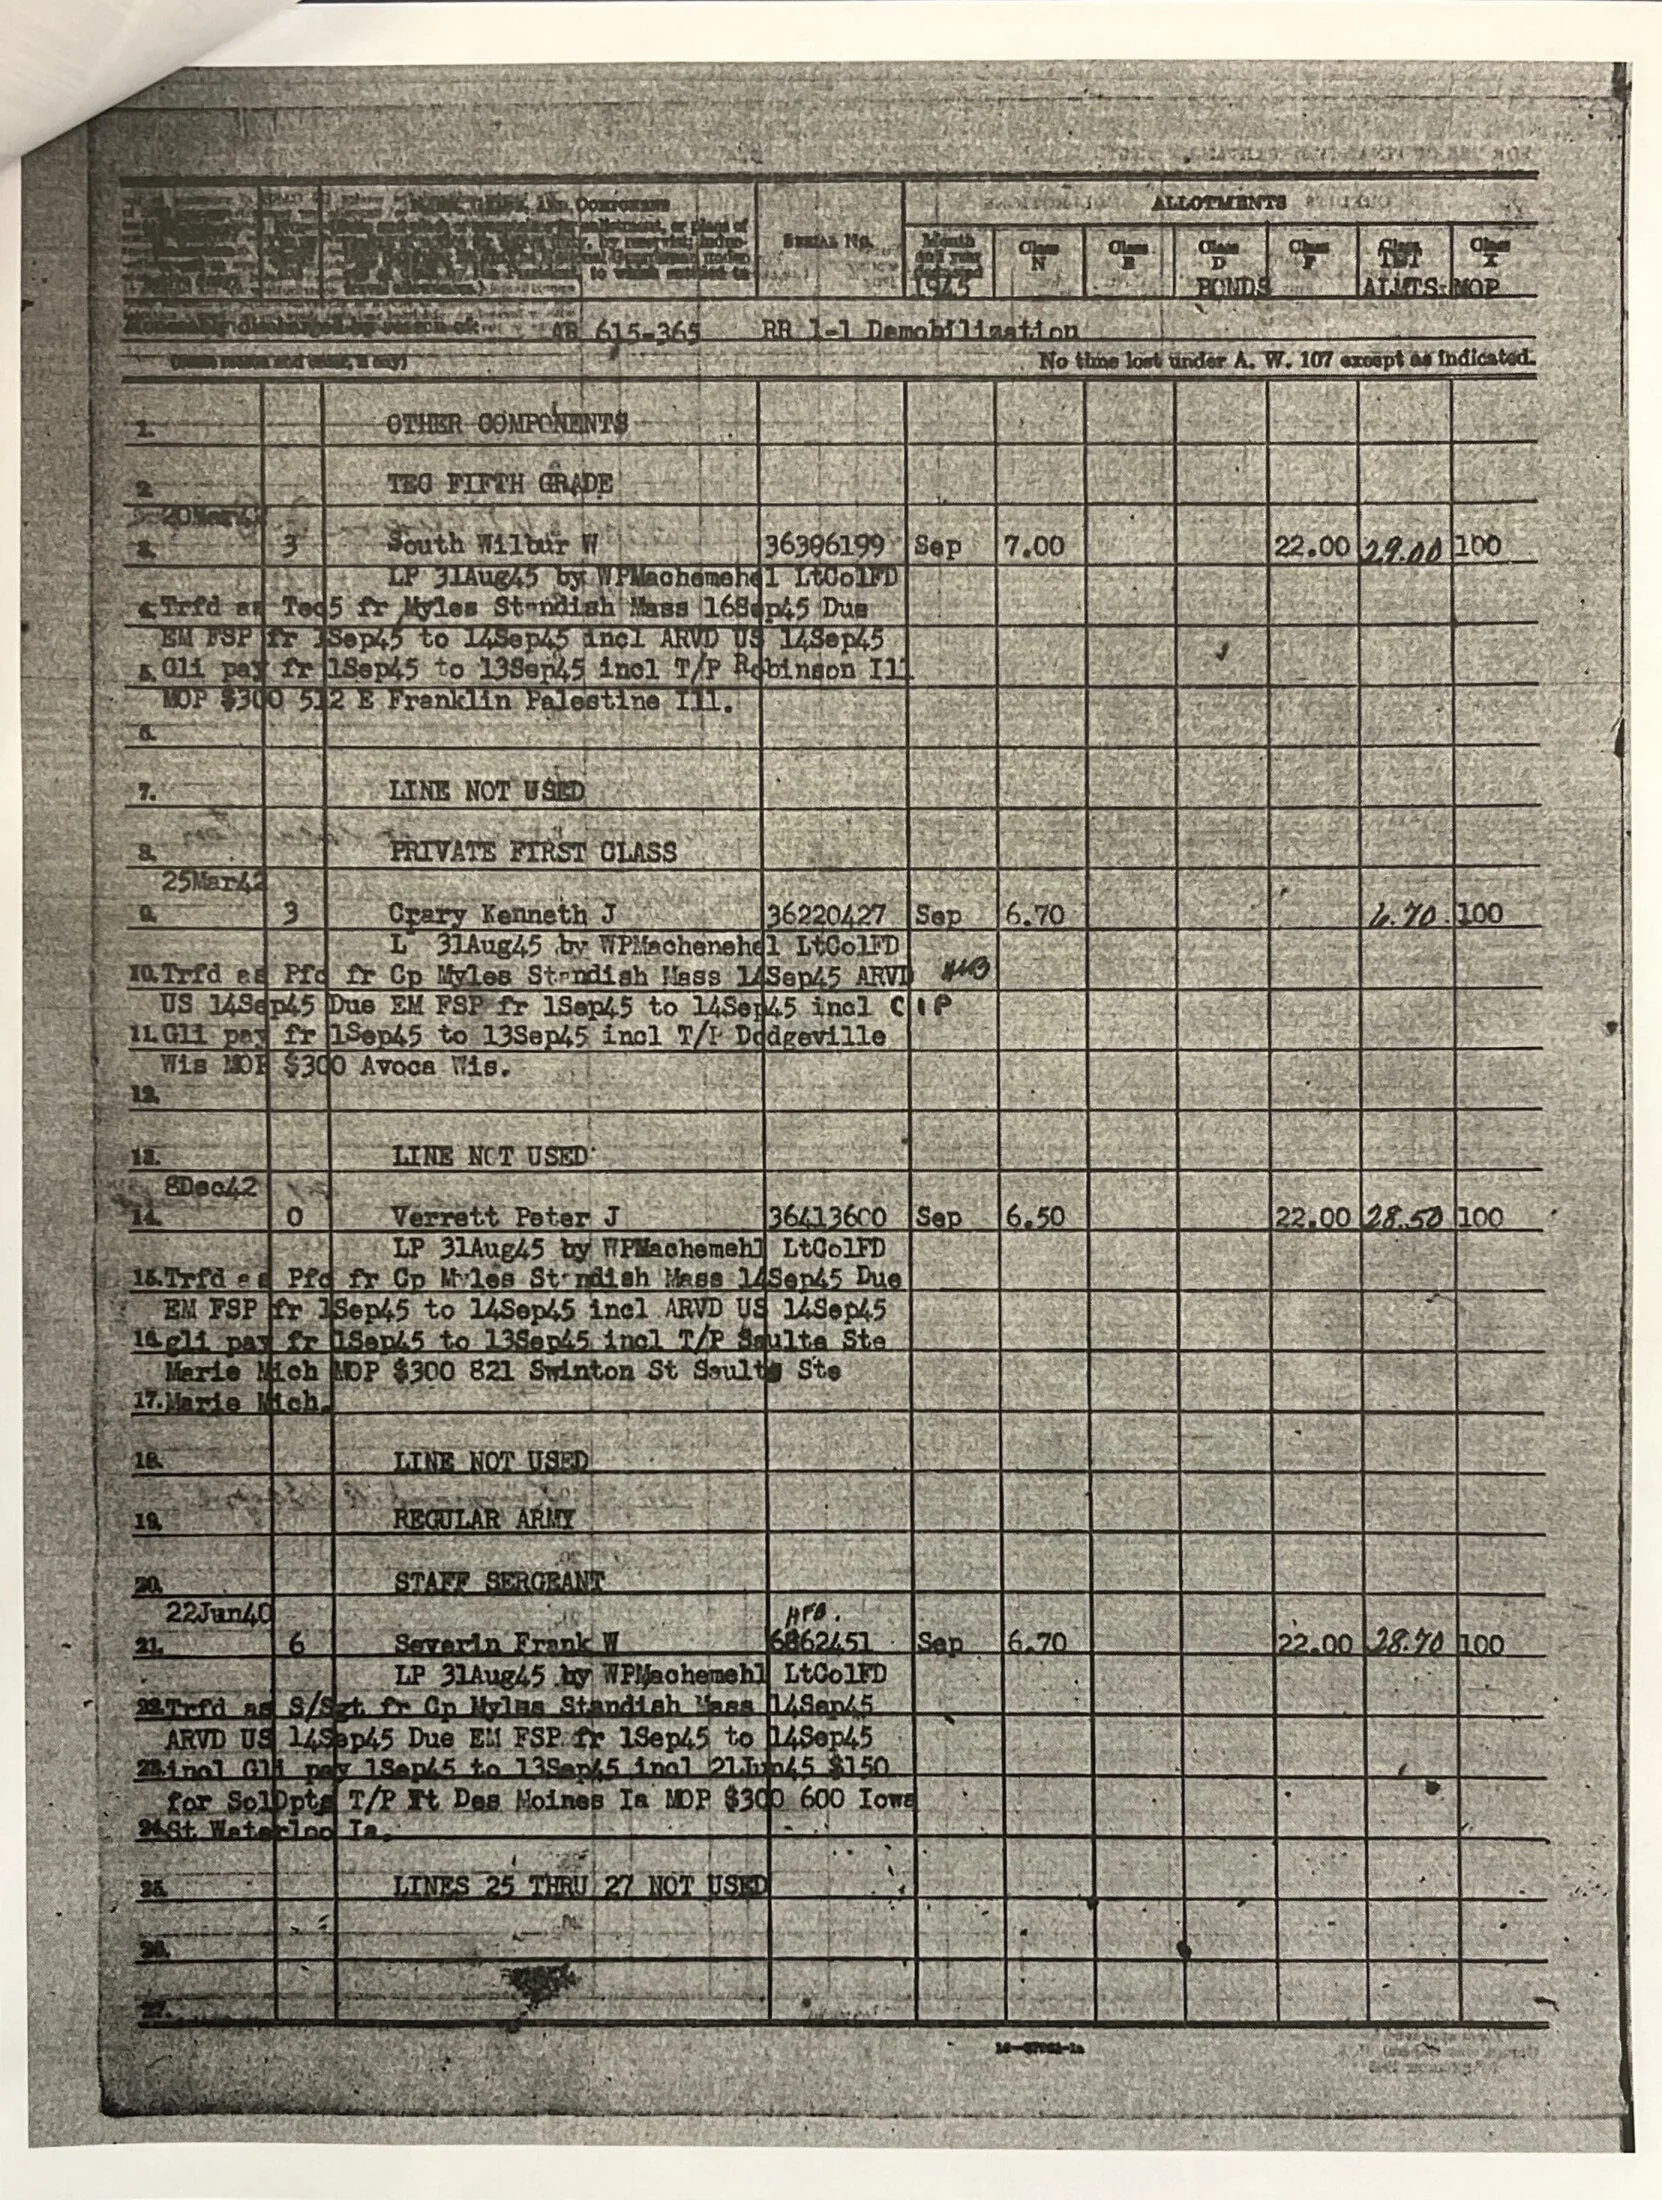 AND COMPONENT
SERIAL NO.
ALLOTMENTS
Month
and year
1945
Class
N
Class
E
Class
D
BONDS
Class
F
Class
TET
ALMTS
Class
X
MOP
Honorably discharged by reason of: AR 615-365 RR 1-1 Demobilization
No time lost under A. W. 107 except as indicated.
1. OTHER COMPONENTS
2. TEC FIFTH GRADE
20Mar42
3. 3 South Wilbur W 36396199 Sep 7.00 22.00 29.00 100
LP 31Aug45 by WPMachemehl LtColFD
4. Trfd as Tec5 fr Myles Standish Mass 16Sep45 Due
EM FSP fr 1Sep45 to 14Sep45 incl ARVD US 14Sep45
5. Gli pay fr 1Sep45 to 13Sep45 incl T/P Robinson Ill
MOP $300 512 E Franklin Palestine Ill.
6.
7. LINE NOT USED
8. PRIVATE FIRST CLASS
25Mar42
9. 3 Crary Kenneth J 36220427 Sep 6.70 6.70 100
L 31Aug45 by WPMachenehl LtColFD
10. Trfd as Pfc fr Cp Myles Standish Mass 14Sep45 ARVD
US 14Sep45 Due EM FSP fr 1Sep45 to 14Sep45 incl
11. Gli pay fr 1Sep45 to 13Sep45 incl T/P Dodgeville
Wis MOP $300 Avoca Wis.
12.
13. LINE NOT USED
8Dec42
14. 0 Verrett Peter J 36413600 Sep 6.50 22.00 28.50 100
LP 31Aug45 by WPMachemehl LtColFD
15. Trfd as Pfc fr Cp Myles Standish Mass 14Sep45 Due
EM FSP fr 1Sep45 to 14Sep45 incl ARVD US 14Sep45
16. gli pay fr 1Sep45 to 13Sep45 incl T/P Saulte Ste
Marie Mich MOP $300 821 Swinton St Saulte Ste
17. Marie Mich.
18. LINE NOT USED
19. REGULAR ARMY
20. STAFF SERGEANT
22Jun40
21. 6 Severin Frank W 6862451 Sep 6.70 22.00 28.70 100
LP 31Aug45 by WPMachemehl LtColFD
22. Trfd as S/Sgt fr Cp Myles Standish Mass 14Sep45
ARVD US 14Sep45 Due EM FSP fr 1Sep45 to 14Sep45
23. incl Gli pay 1Sep45 to 13Sep45 incl 21Jun45 $150
for SolDpts T/P Ft Des Moines Ia MOP $300 600 Iowa
24. St Waterloo Ia.
25. LINES 25 THRU 27 NOT USED
26.
27.